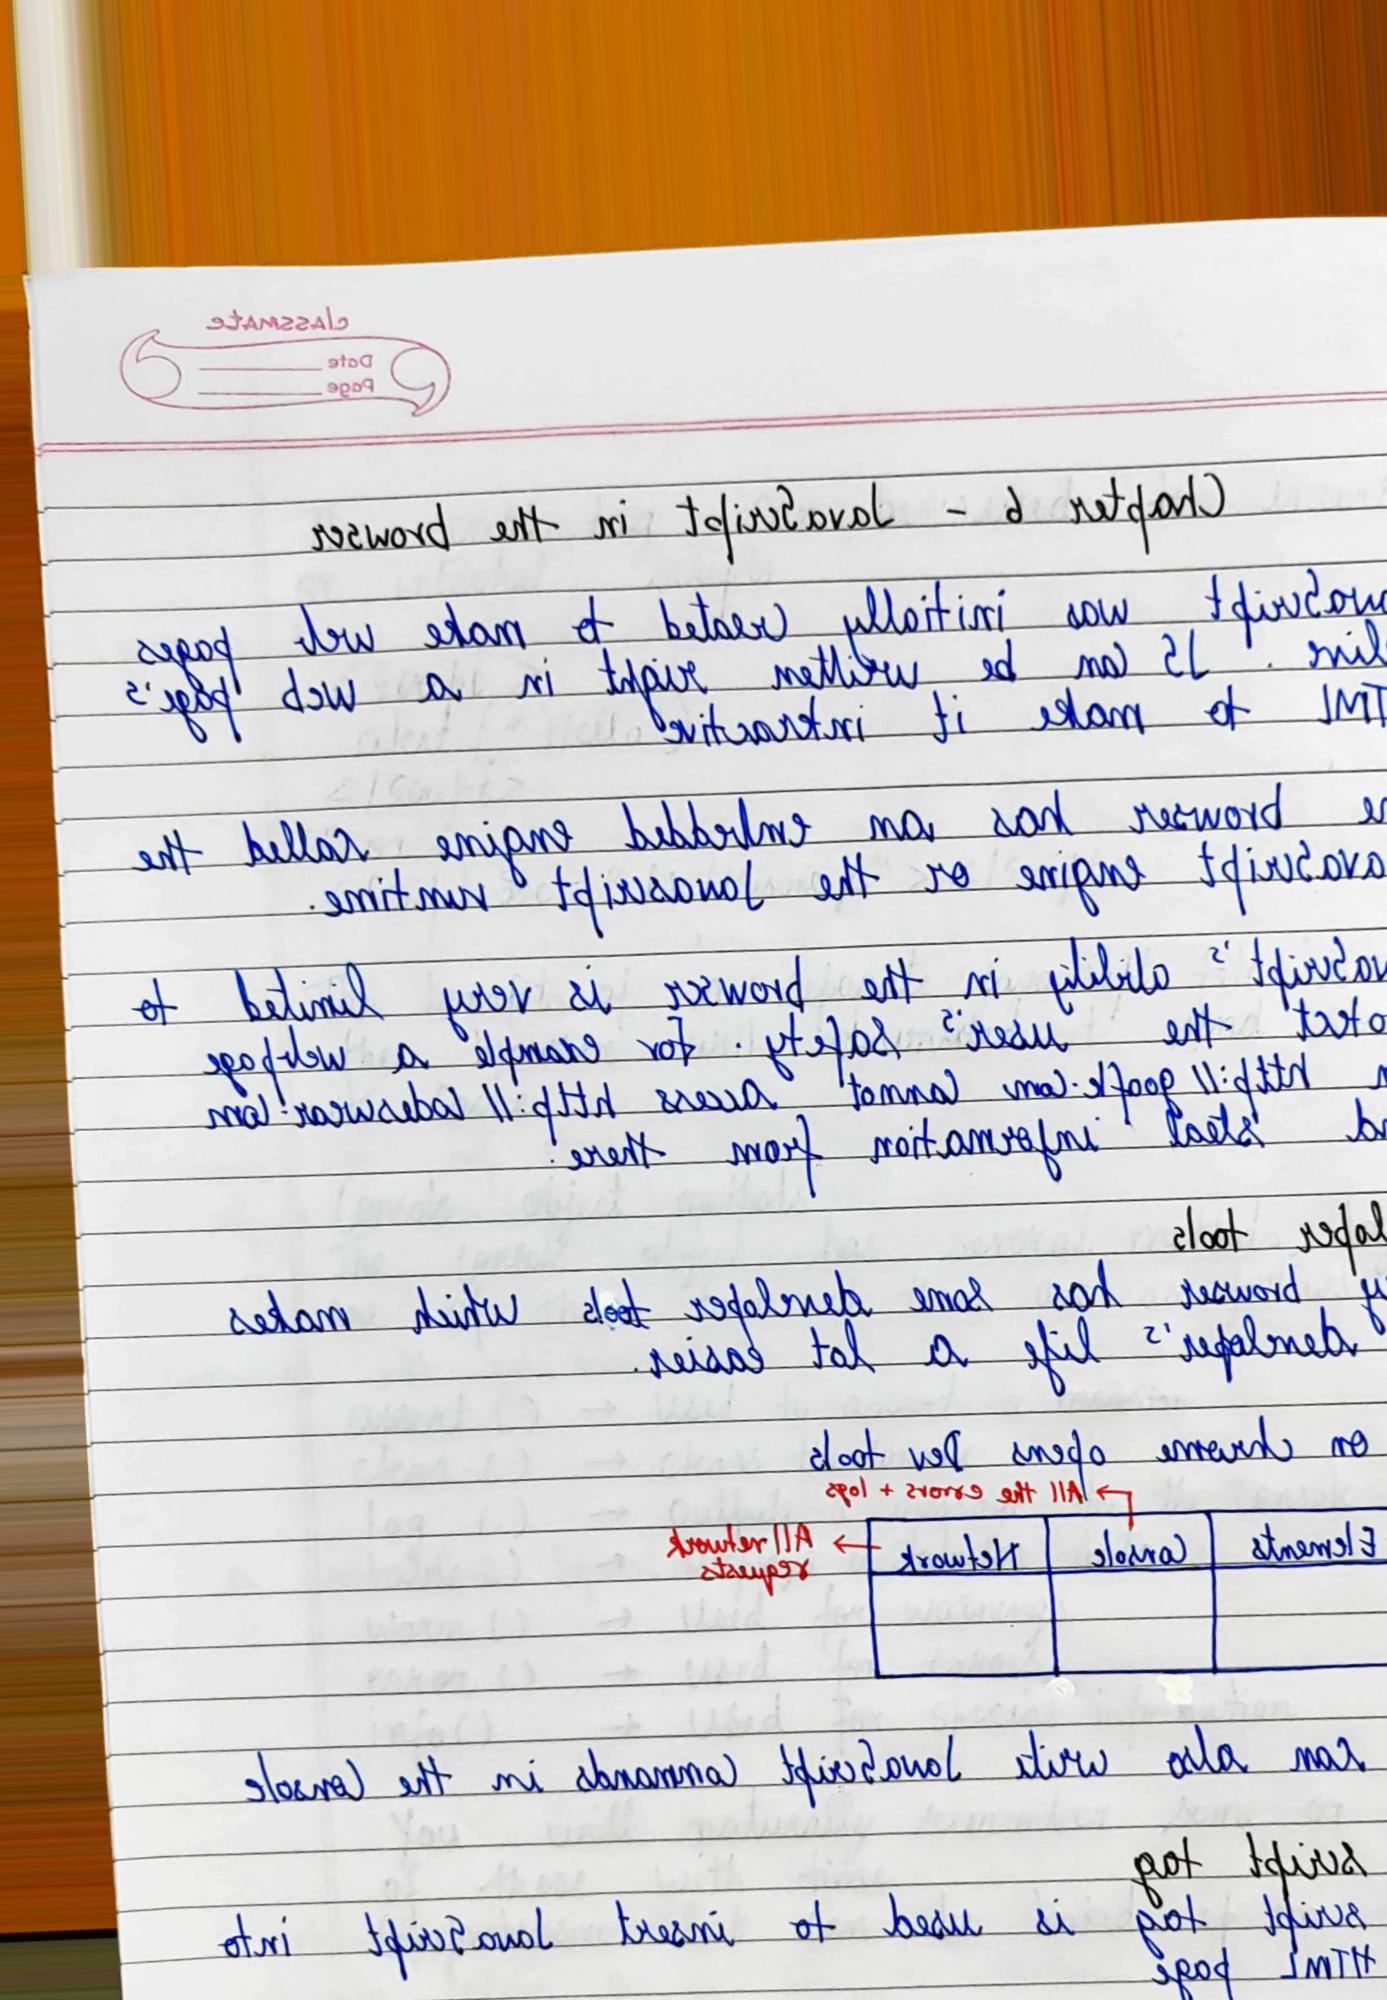 classmate
Date
Page
Chapter 6 - JavaScript in the browser
avaScript was initially created to make web pages
live. JS can be written right in a web page's
TML to make it interactive
e browser has an embedded engine called the
avaScript engine or the Javascript runtime.
vaScript's ability in the browser is very limited to
otect the user's safety. for example a webpage
http://google.com cannot access http://codeswear.com
nd steal information from there.
loper tools
y browser has some developer tools which makes
developer's life a lot easier.
on chrome opens Dev tools
All the errors + logs
Elements Console Network → All network
requests
can also write JavaScript commands in the console
script tag
script tag is used to insert JavaScript into
HTML page